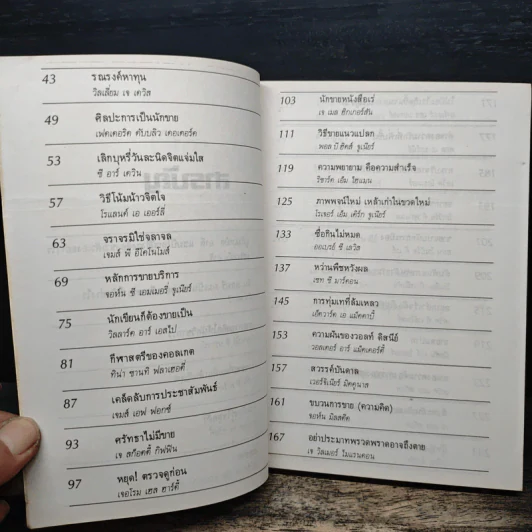 43 รณรงค์หาทุน
วิลเลี่ยม เจ เดวิส
49 ศิลปะการเป็นนักขาย
เฟดเดอริค ดับบลิว
53 เลิกบุหรี่วันละนิดจิตแจ่มใส
ซี อาร์ เดวิน
57 วิธีโน้มน้าวจิตใจ
โรแลนด์ เอ เออร์ลี่
63 จราจรมิใช่จลาจล
เจมส์ พี อีโคโนโมส์
69 หลักการขายบริการ
จอห์น ซี เอมเมอรี่ จูเนียร์
75 นักเขียนก็ต้องขายเป็น
วิลลาร์ด อาร์ เอสไป
81 กีฬาสตรีของคอลเกต
ทีน่า ซานทิ ฟลาเฮอดี้
87 เคล็ดลับการประชาสัมพันธ์
เจมส์ เอฟ ฟอกซ์
93 ศรัทธาไม่มีขาย
เจ สก๊อตตี้ กิฟฟิ่น
97 หยุด! ตรวจดูก่อน
เจอโรม เฮส ฮาร์ดี้
103 นักขายหนังสือเร่
เจ เมล ฮิกเกอร์สัน
111 วิธีขายแนวแปลก
พอล บี ฮิคส์ จูเนียร์
119 ความพยายาม คือความสำเร็จ
ริชาร์ด เอ็ม โฮแมน
125 ภาพพจน์ใหม่ เหล้าเก่าในขวดใหม่
โรเจอร์ เอ็ม เคิร์ก จูเนียร์
133 ซื่อกินไม่หมด
ออเวรย์ ซี เลวิส
137 หว่านพืชหวังผล
เชท ซี มาร์คอน
145 การทุ่มเทที่ล้มเหลว
เอ็ดวาร์ด เอ แม็คคาบี้
153 ความฝันของวอลท์ ดิสนีย์
วอลเตอร์ อาร์ แม็คเดอร์ดี้
157 สวรรค์บันดาล
เวอร์จิเนียร์ มิคคูนาส
161 ขบวนการขาย (ความคิด)
จอห์น มิลสตีด
167 อย่าประมาทพรวดพราดอาจถึงตาย
เจ วิลเมอร์ ไมแรนดอน